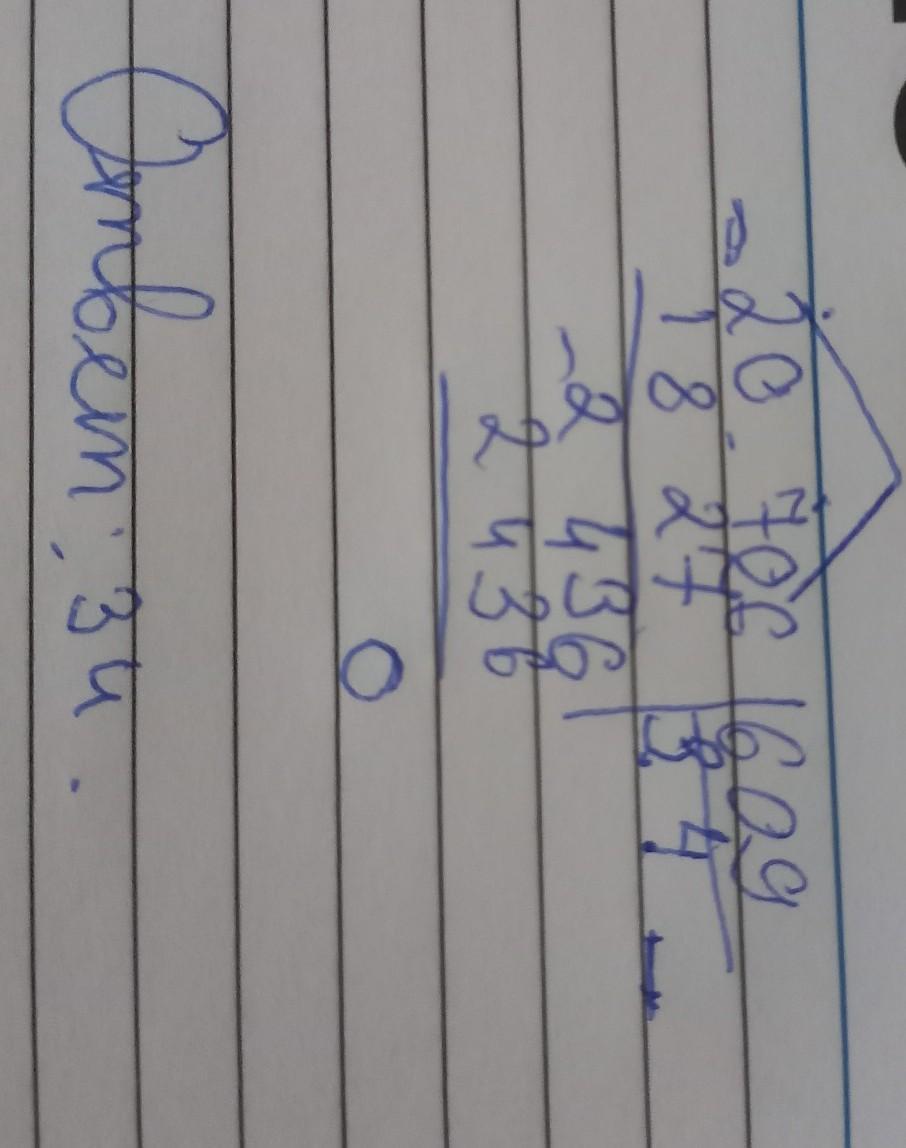 - 20.706 | 609
18 27 | 34
- 2 436
2 436
0
Ответ: 34.